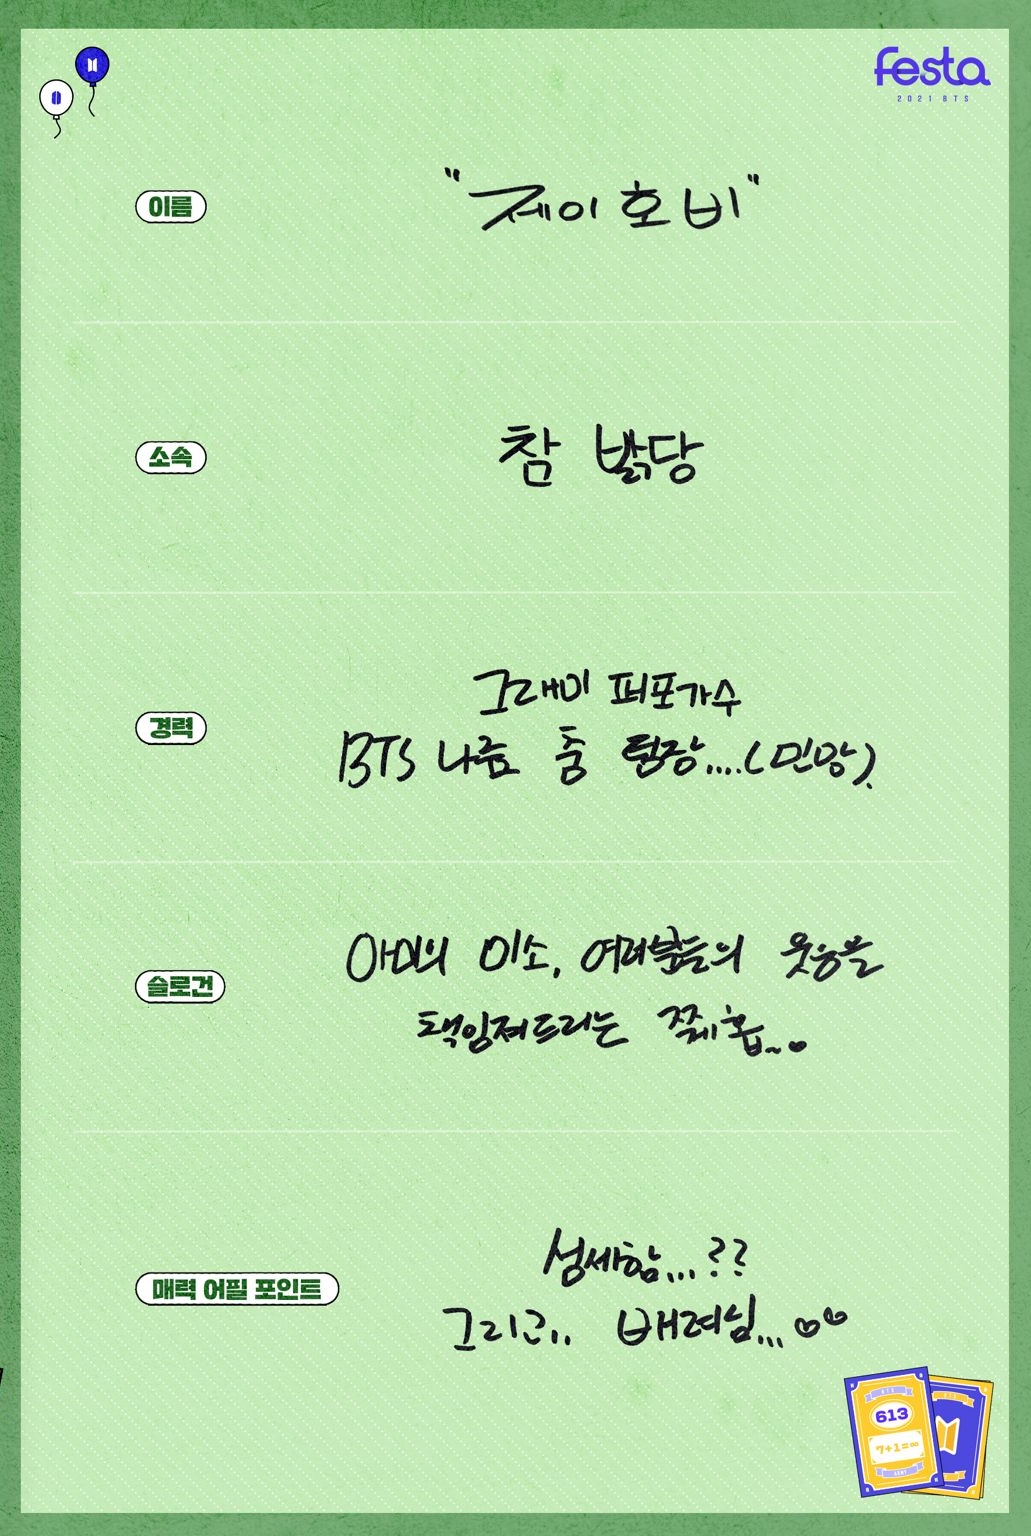 festa
2021 BTS
이름
"제이호비"
소속
참 밝당
경력
그래미 퍼포가수
BTS 나름 춤 팀장....(민망).
슬로건
아미의 미소, 여러분들의 웃음을
책임져드리는 쩨홉~♥
매력 어필 포인트
섬세함...??
그리고.. 배려심...♡♡
BTS
613
7+1=∞